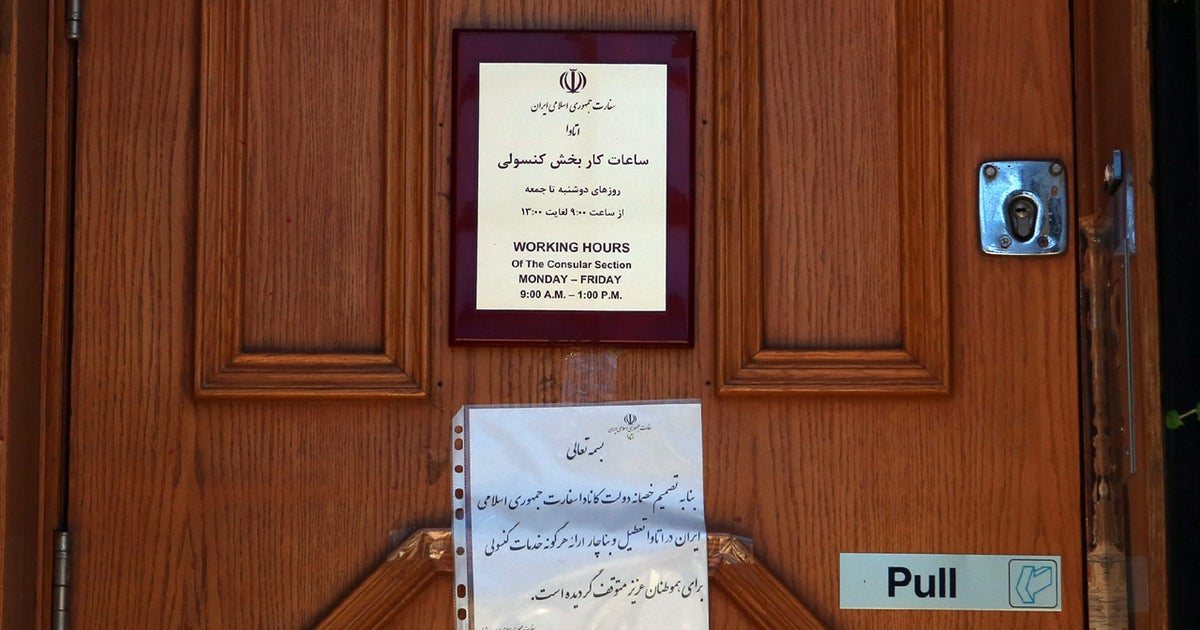 سفارت جمهوری اسلامی ایران
اتاوا
ساعات کار بخش کنسولی
روزهای دوشنبه تا جمعه
از ساعت ۹:۰۰ لغایت ۱۳:۰۰
WORKING HOURS
Of The Consular Section
MONDAY – FRIDAY
9:00 A.M. – 1:00 P.M.
سفارت جمهوری اسلامی ایران
اتاوا
بسمه تعالی
بنا به تصمیم خصمانه دولت کانادا سفارت جمهوری اسلامی
ایران در اتاوا تعطیل و بناچار ارائه هرگونه خدمات کنسولی
برای هموطنان عزیز متوقف گردیده است.
Pull